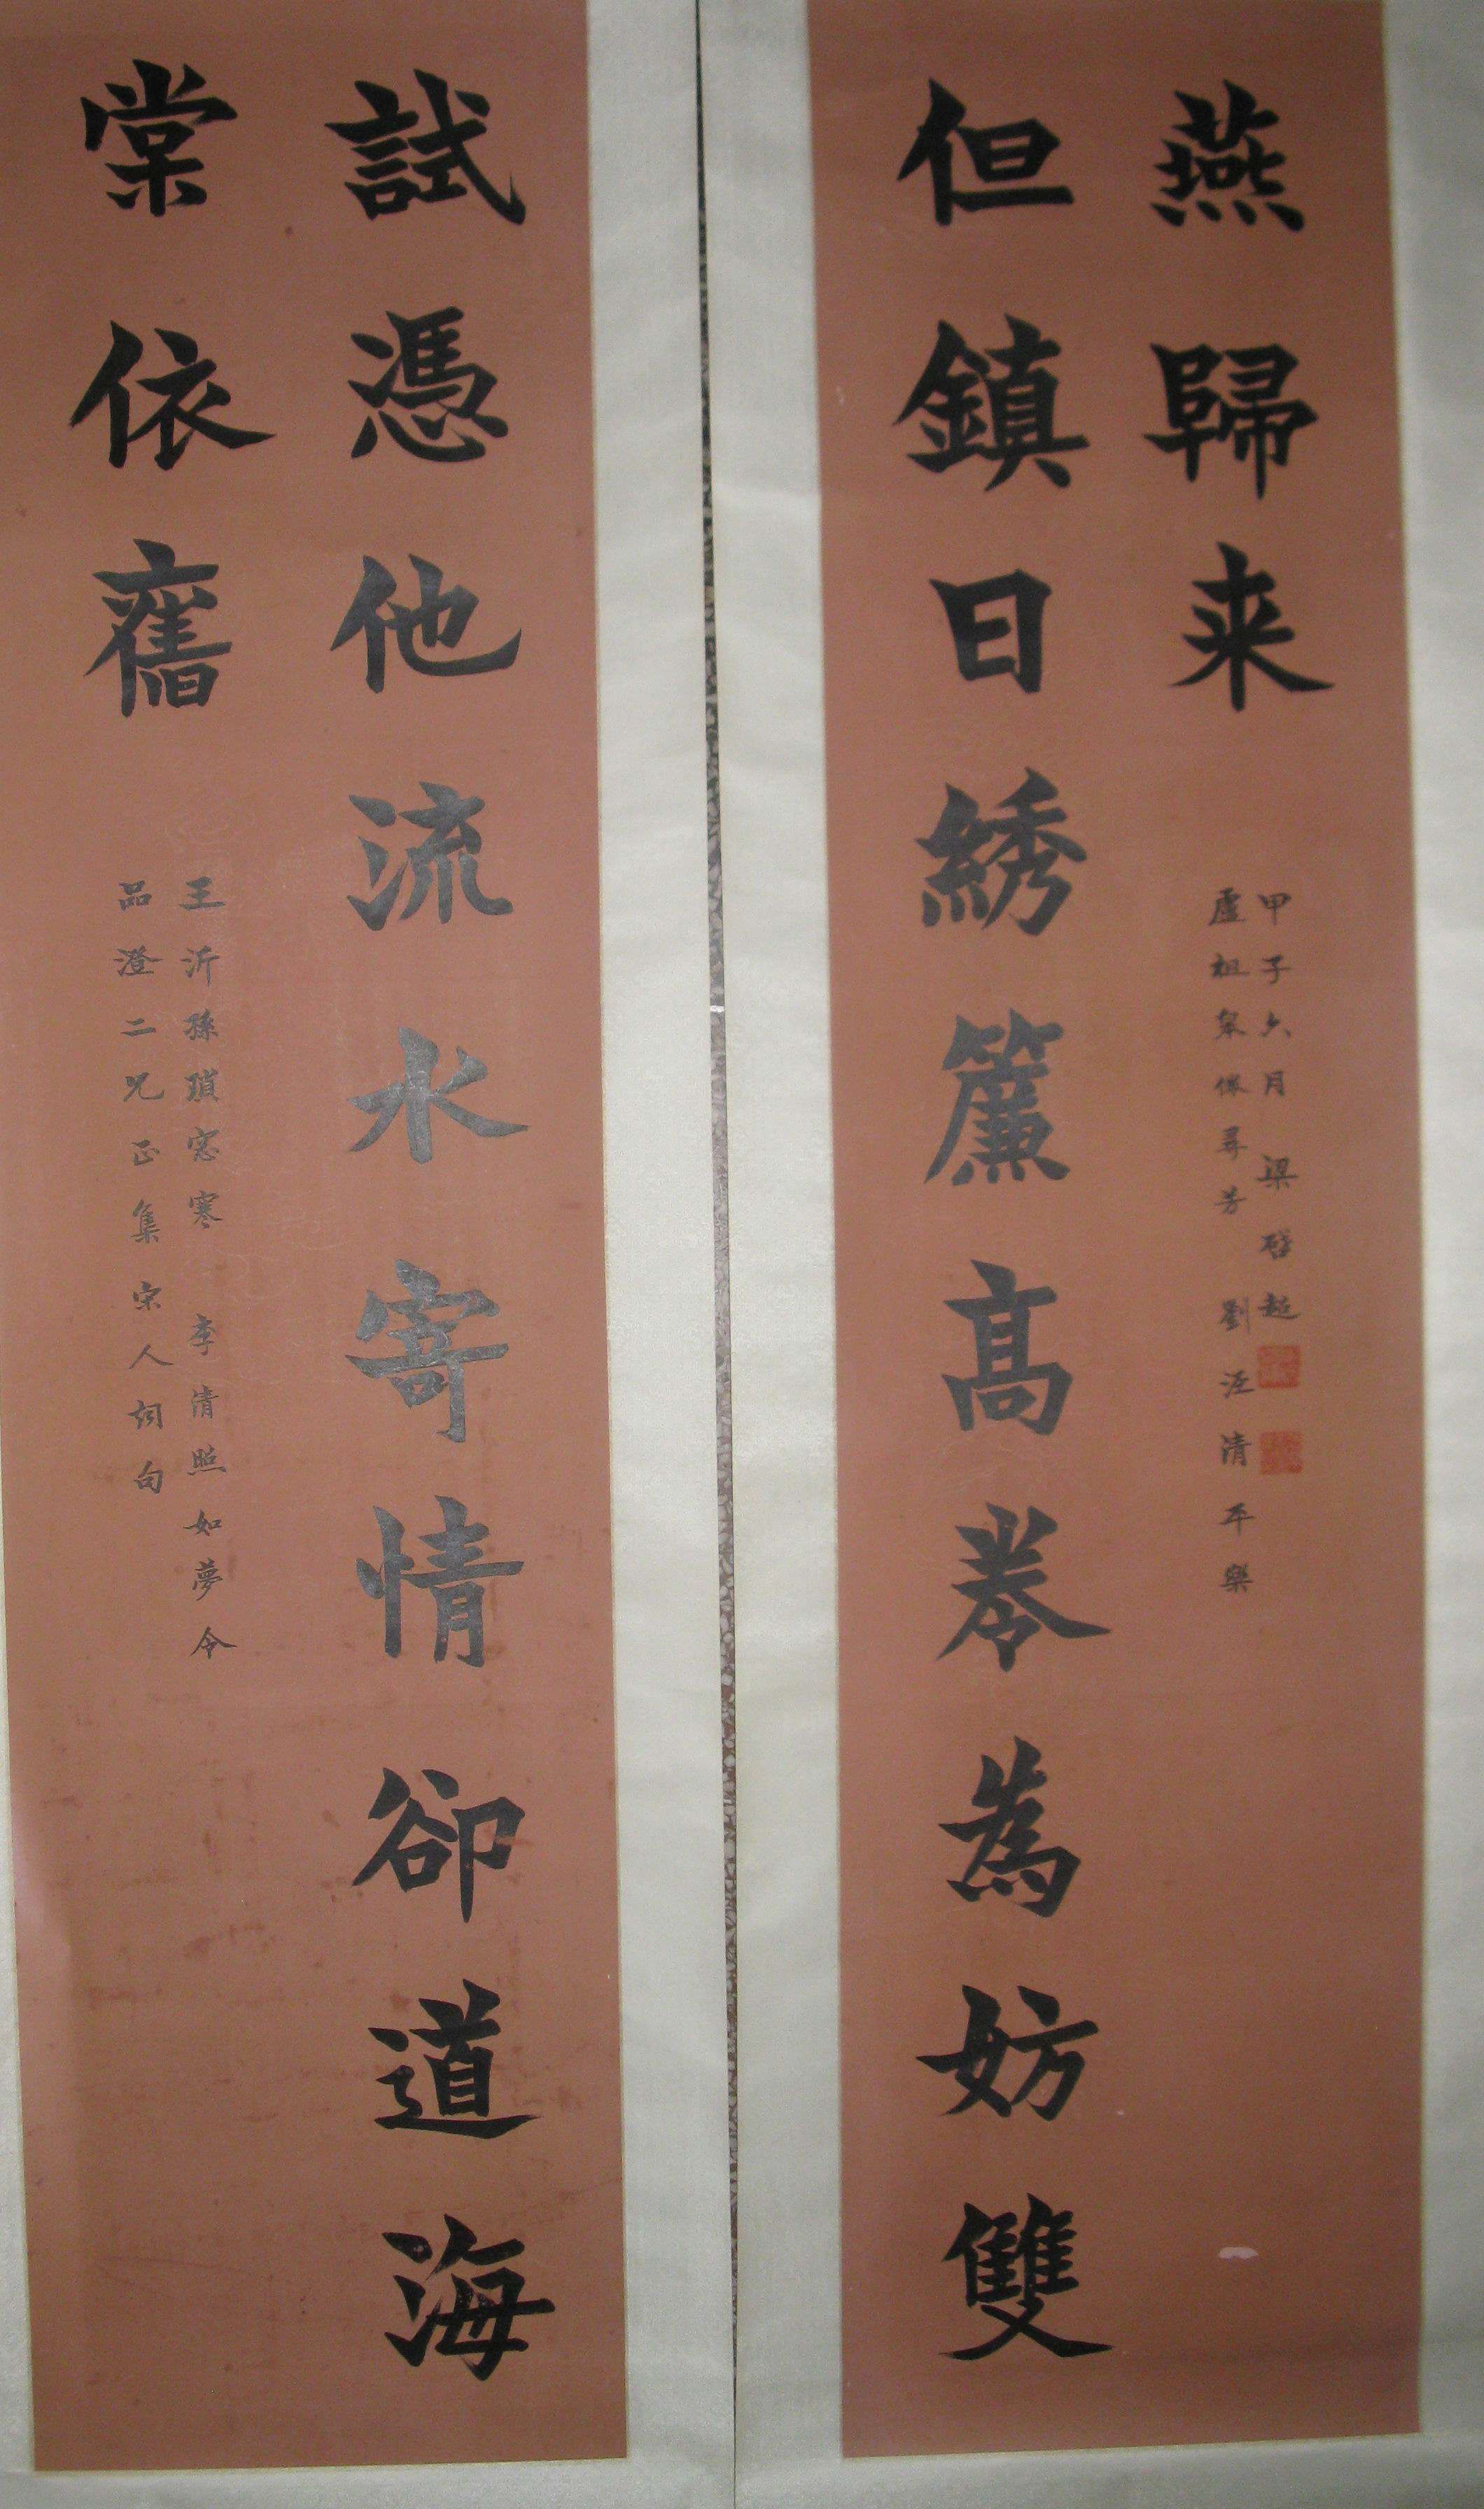 試憑他流水寄情卻道海
棠依舊
王沂孫瑣窓寒 李清照如夢令
品澄二兄正集宋人詞句
但鎮日綉簾高卷為妨雙
燕歸来
盧祖皋倦尋芳 劉涇清平樂
甲子六月 梁啓超